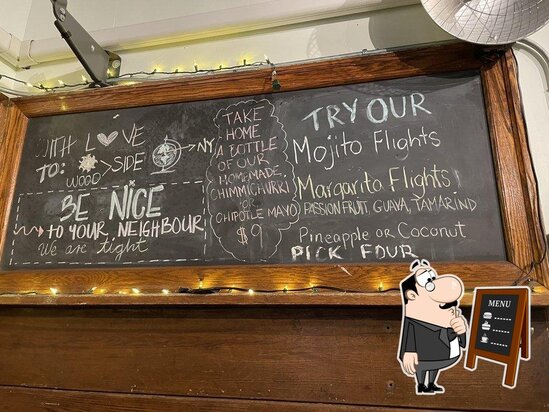 WITH LOVE
TO: WOOD > SIDE → NY
BE NICE
→ TO YOUR NEIGHBOUR
We are tight
TAKE
HOME
A BOTTLE
OF OUR
HOMEMADE
CHIMMICHURRI
OR
CHIPOTLE MAYO
$9
TRY OUR
Mojito Flights
Margarita Flights
PASSIONFRUIT, GUAVA, TAMARIND
Pineapple or Coconut
PICK FOUR
MENU